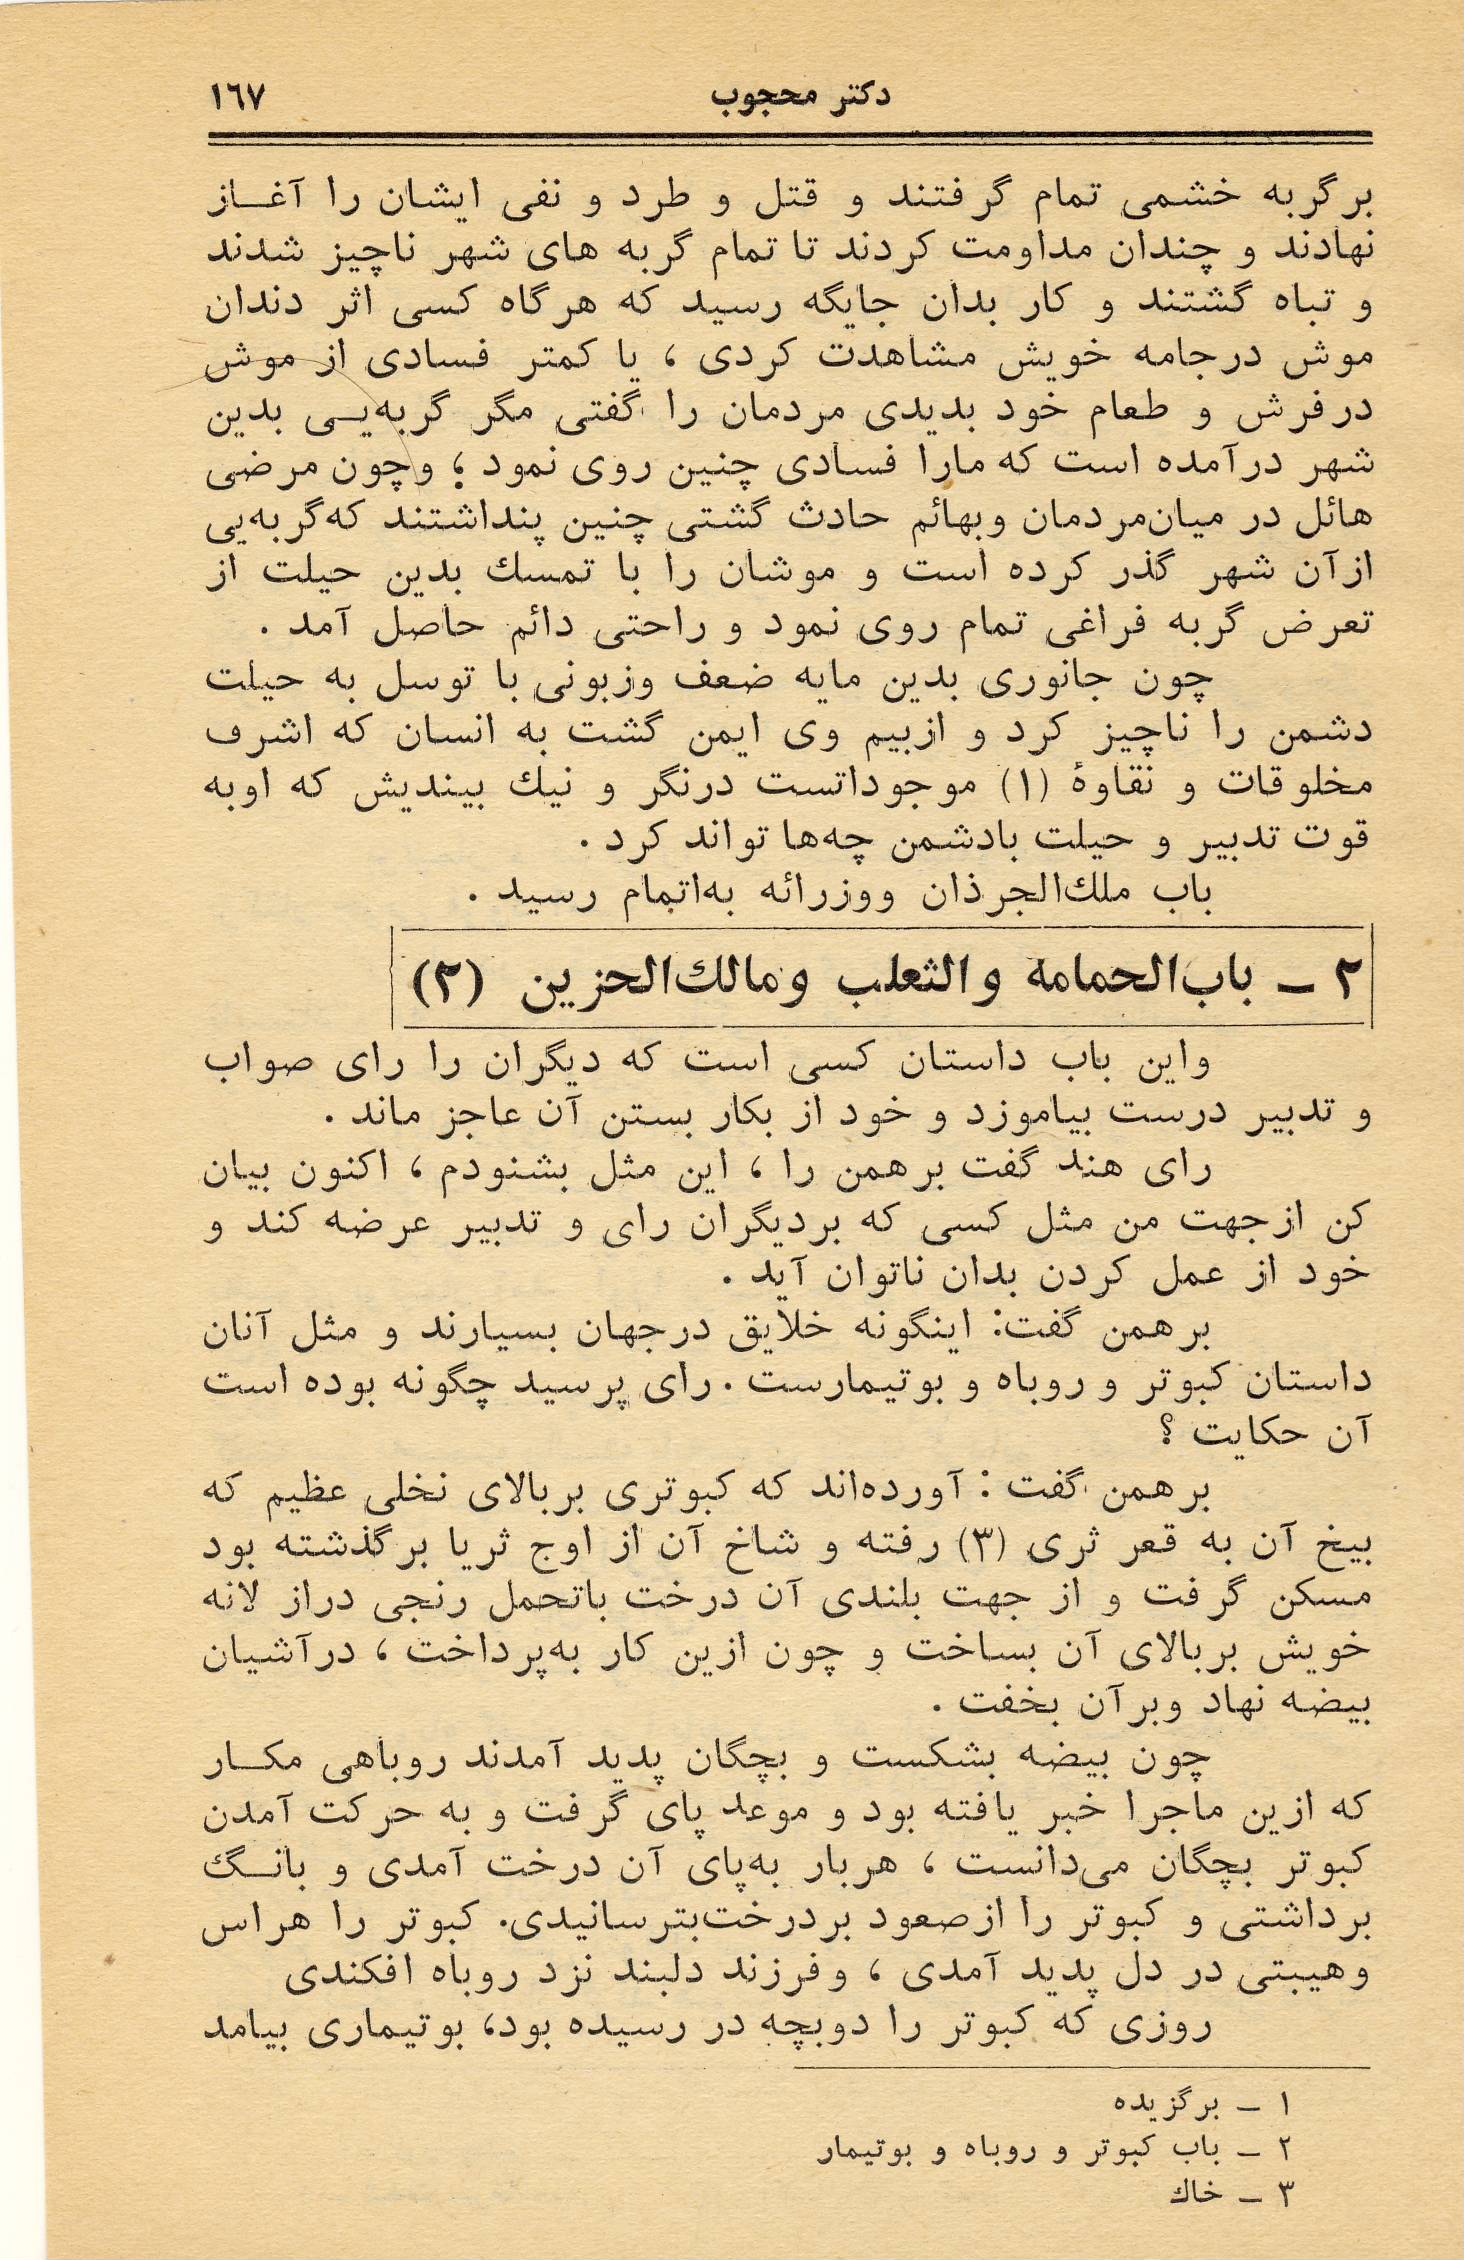 دکتر محجوب
۱٦۷
برگربه خشمی تمام گرفتند و قتل و طرد و نفی ایشان را آغـاز
نهادند و چندان مداومت کردند تا تمام گربه های شهر ناچیز شدند
و تباه گشتند و کار بدان جایگه رسید که هرگاه کسی اثر دندان
موش درجامه خویش مشاهدت کردی ، یا کمتر فسادی از موش
درفرش و طعام خود بدیدی مردمان را گفتی مگر گربه‌یـی بدین
شهر درآمده است که مارا فسادی چنین روی نمود ؛ وچون مرضی
هائل در میان‌مردمان وبهائم حادث گشتی چنین پنداشتند که‌گربه‌یی
ازآن شهر گذر کرده است و موشان را با تمسك بدین حیلت از
تعرض گربه فراغی تمام روی نمود و راحتی دائم حاصل آمد .
چون جانوری بدین مایه ضعف وزبونی با توسل به حیلت
دشمن را ناچیز کرد و ازبیم وی ایمن گشت به انسان که اشرف
مخلوقات و نقاوهٔ (۱) موجوداتست درنگر و نیك بیندیش که اوبه
قوت تدبیر و حیلت بادشمن چه‌ها تواند کرد .
باب ملك‌الجرذان ووزرائه به‌اتمام رسید .
۲ ـ باب‌الحمامه والثعلب ومالك‌الحزین (۲)
واین باب داستان کسی است که دیگران را رای صواب
و تدبیر درست بیاموزد و خود از بکار بستن آن عاجز ماند .
رای هند گفت برهمن را ، این مثل بشنودم ، اکنون بیان
کن ازجهت من مثل کسی که بردیگران رای و تدبیر عرضه کند و
خود از عمل کردن بدان ناتوان آید .
برهمن گفت: اینگونه خلایق درجهان بسیارند و مثل آنان
داستان کبوتر و روباه و بوتیمارست . رای پرسید چگونه بوده است
آن حکایت ؟
برهمن گفت : آورده‌اند که کبوتری بربالای نخلی عظیم که
بیخ آن به قعر ثری (۳) رفته و شاخ آن از اوج ثریا برگذشته بود
مسکن گرفت و از جهت بلندی آن درخت باتحمل رنجی دراز لانه
خویش بربالای آن بساخت و چون ازین کار به‌پرداخت ، درآشیان
بیضه نهاد وبرآن بخفت .
چون بیضه بشکست و بچگان پدید آمدند روباهی مکـار
که ازین ماجرا خبر یافته بود و موعد پای گرفت و به حرکت آمدن
کبوتر بچگان می‌دانست ، هربار به‌پای آن درخت آمدی و بانـگ
برداشتی و کبوتر را ازصعود بردرخت‌بترسانیدی. کبوتر را هراس
وهیبتی در دل پدید آمدی ، وفرزند دلبند نزد روباه افکندی
روزی که کبوتر را دوبچه در رسیده بود، بوتیماری بیامد
۱ ـ برگزیده
۲ ـ باب کبوتر و روباه و بوتیمار
۳ ـ خاك